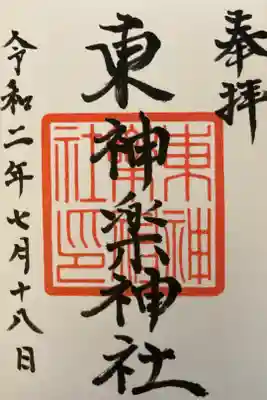 奉拝
東神楽神社
東神楽神社印
令和二年七月十八日